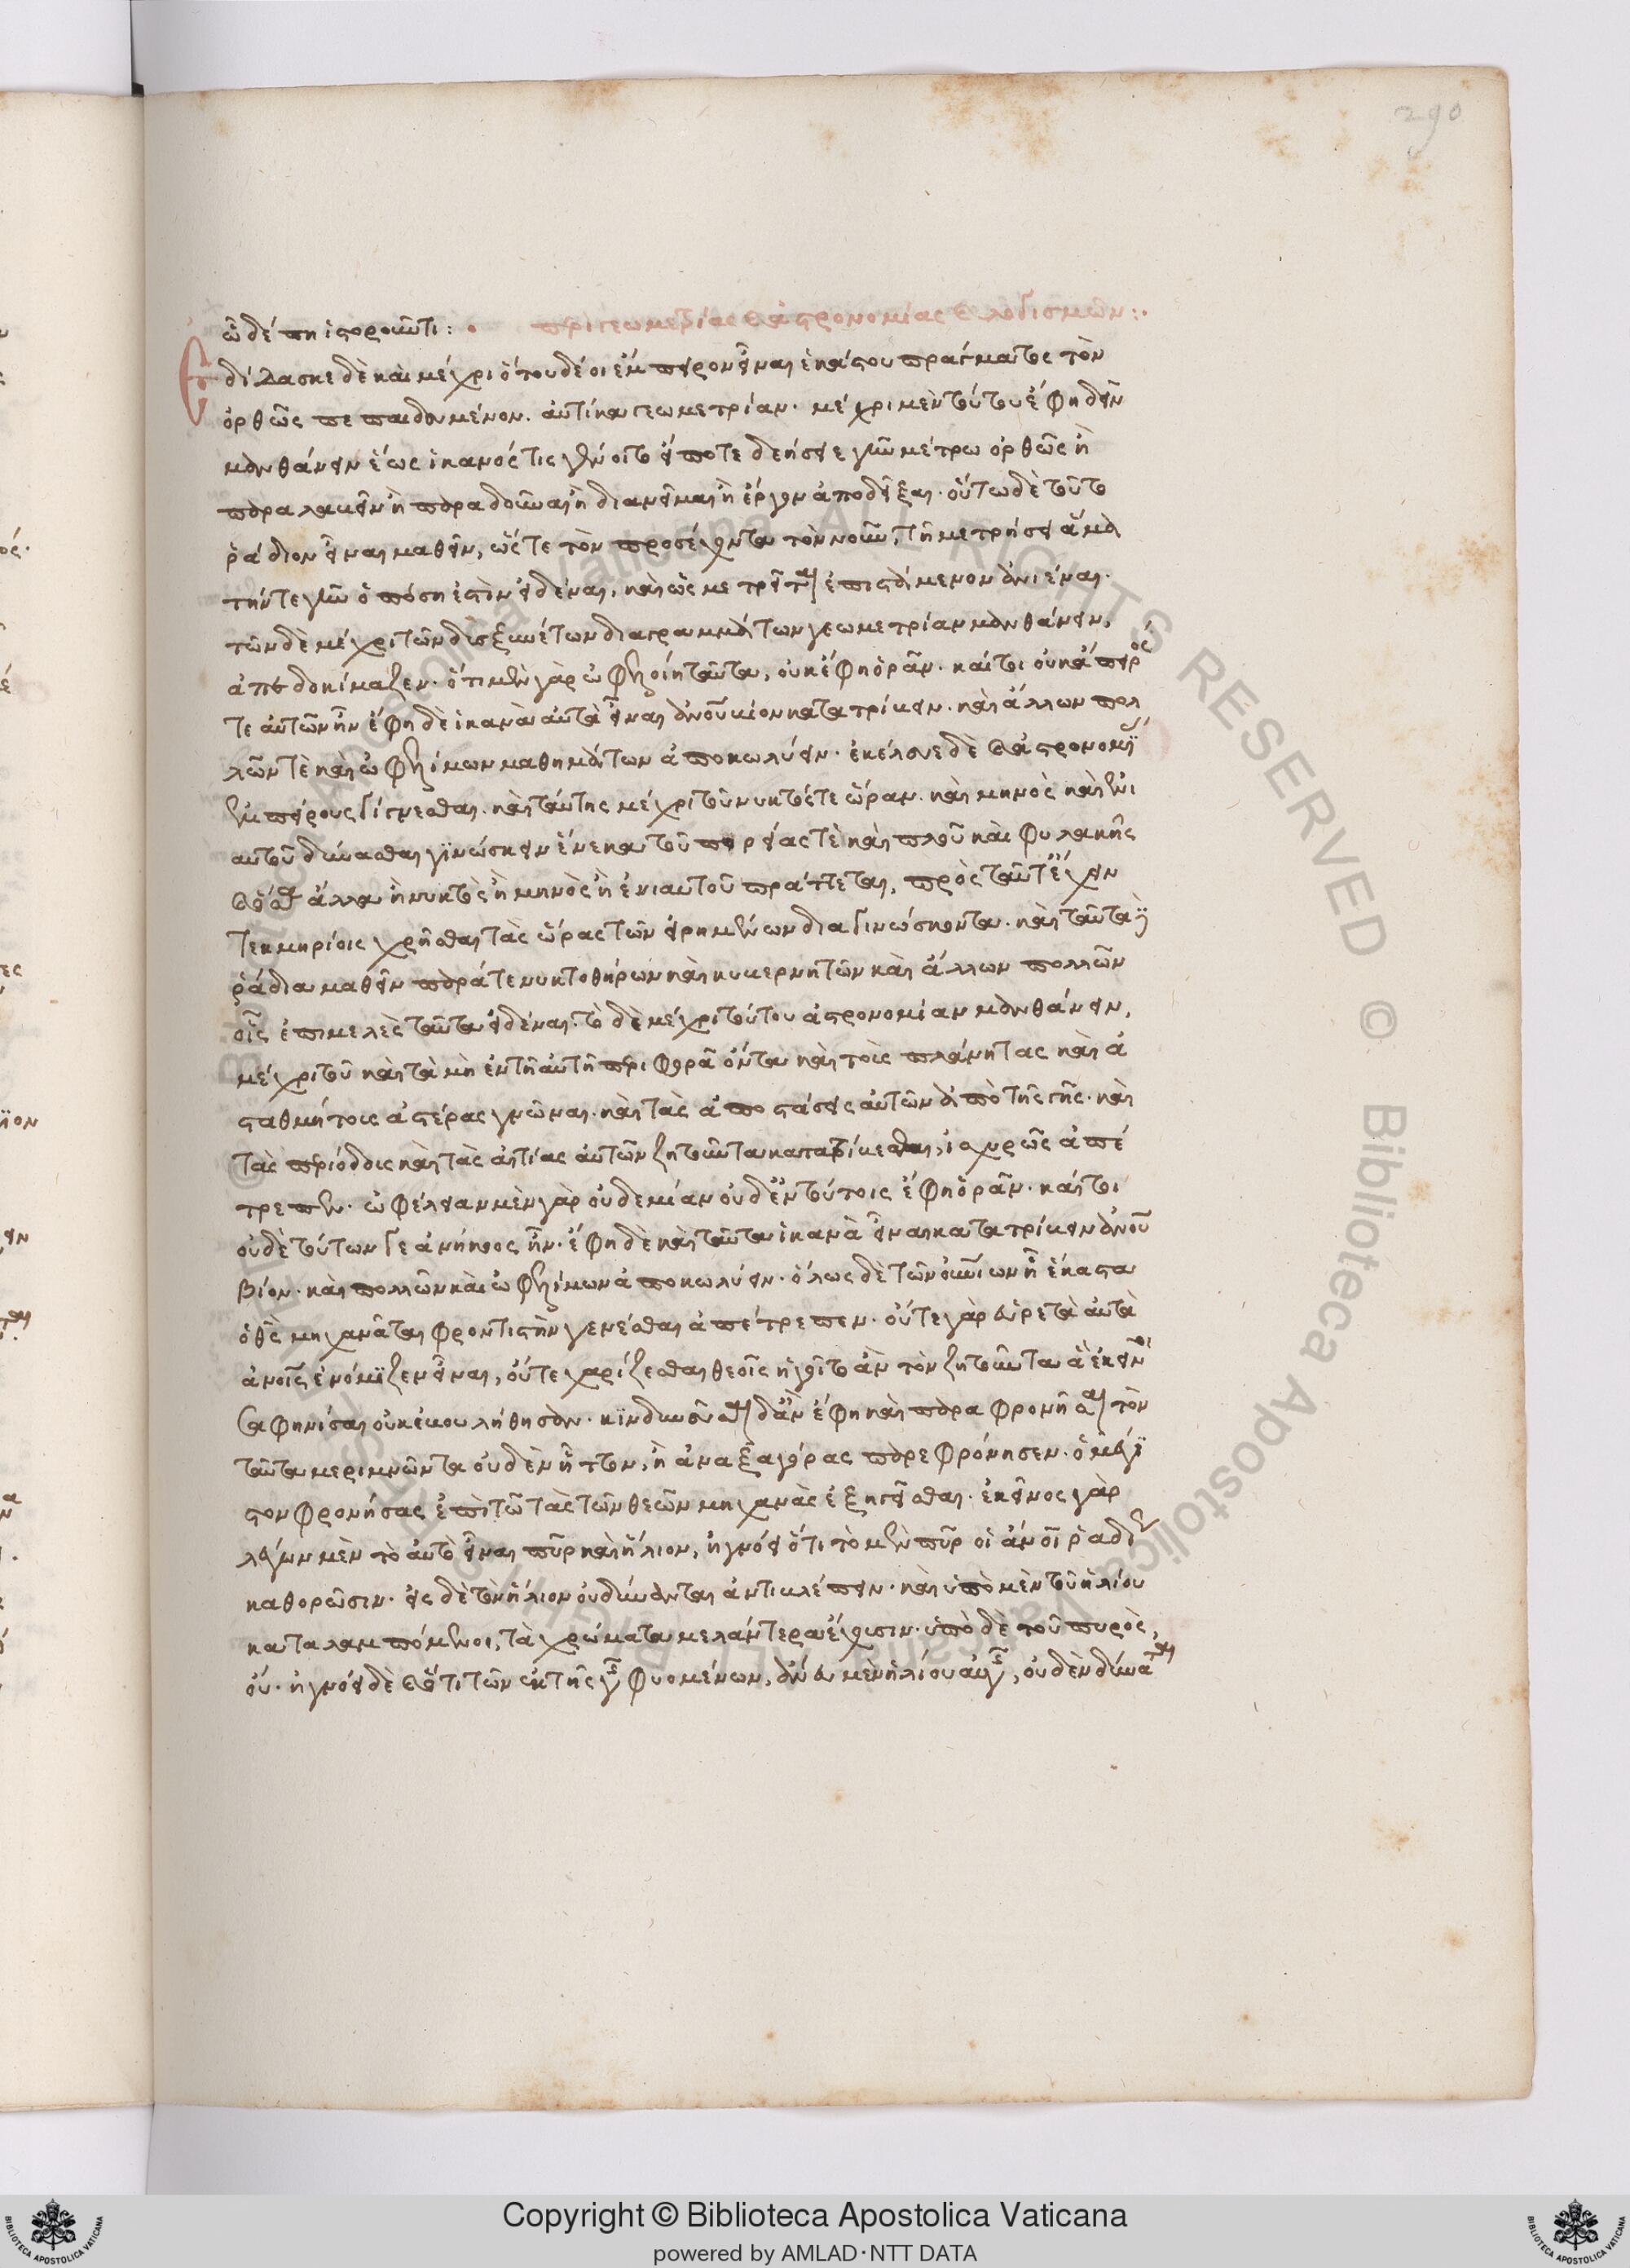 290
ὧδέ πῃ ἱστοροῦντι: · περὶ γεωμετρίας καὶ ἀστρονομίας καὶ λογισμῶν:·
Ἐδίδασκε δὲ καὶ μέχρι ὅτου δέοι ἔμπειρον εἶναι ἑκάστου πράγματος τὸν
ὀρθῶς πεπαιδευμένον. αὐτίκα γεωμετρίαν· μέχρι μὲν τούτου ἔφη δεῖν
μανθάνειν ἕως ἱκανός τις γένοιτο εἴποτε δεήσειε γῆν μέτρω ὀρθῶς ἢ
παραλαβεῖν ἢ παραδοῦναι ἢ διανεῖμαι ἢ ἔργον ἀποδεῖξαι· οὕτω δὲ τοῦτο
ῥάδιον εἶναι μαθεῖν, ὥστε τὸν προσέχοντα τὸν νοῦν, τῇ μετρήσει ἅμα
τήν τε γῆν ὁπόση ἐστὶν εἰδέναι, καὶ ὡς μετρεῖται ἐπιστάμενον ἀνιέναι·
τῶν δὲ μέχρι τῶν δυσξυνέτων διαγραμμάτων γεωμετρίαν μανθάνειν,
ἀπεδοκίμαζεν· ὅτι μὲν γὰρ ὠφελοίη ταῦτα, οὐκ ἔφη ὁρᾶν. καίτοι οὐκ ἄπειρός
τε αὐτῶν ἦν ἔφη δὲ ἱκανὰ αὐτὰ εἶναι ἀνοῦ βίον κατατρίβειν. καὶ ἄλλων πολ
λῶν τὲ καὶ ὠφελίμων μαθημάτων ἀποκωλύειν. ἐκέλευε δὲ καὶ ἀστρονομίας
ἐμπείρους γίγνεσθαι. καὶ ταύτης μέχρι τοῦ νυκτός τε ὥραν. καὶ μηνὸς καὶ ἐνι
αυτοῦ δύνασθαι γϊνώσκειν ἕνεκα τοῦ πορείας τὲ καὶ πλοῦ καὶ φυλακῆς
καὶ ὅσα ἄλλα ἢ νυκτὸς ἢ μηνὸς ἢ ἐνιαυτοῦ πράττεται, πρὸς ταῦτ' ἔχειν
τεκμηρίοις χρῆσθαι τὰς ὥρας τῶν εἰρημένων διαγινώσκοντα. καὶ ταῦτα δὲ
ῥάδια μαθεῖν παρά τε νυκτοθήρων καὶ κυβερνητῶν καὶ ἄλλων πολλῶν
οἷς ἐπιμελὲς ταῦτα εἰδέναι. τὸ δὲ μέχρι τούτου ἀστρονομίαν μανθάνειν,
μέχρι τοῦ καὶ τὰ μὴ ἐν τῇ αὐτῇ περιφορᾷ ὄντα καὶ τοὺς πλάνητας καὶ ἀ
σταθμήτους ἀστέρας γνῶναι. καὶ τὰς ἀποστάσεις αὐτῶν ἀπὸ τῆς γῆς. καὶ
τὰς περιόδους καὶ τὰς αἰτίας αὐτῶν ζητοῦντα κατατρίβεσθαι, ἰσχυρῶς ἀπέ
τρεπεν. ὠφέλειαν μὲν γὰρ οὐδεμίαν οὐδ' ἐν τούτοις ἔφη ὁρᾶν. καίτοι
οὐδὲ τούτων γε ἀνήκοος ἦν. ἔφη δὲ καὶ ταῦτα ἱκανὰ εἶναι κατατρίβειν ἀνοῦ
βίον. καὶ πολλῶν καὶ ὠφελίμων ἀποκωλύειν. ὅλως δὲ τῶν οὐνίων ᾗ ἕκαστα
ὁ θς μηχανᾶται φροντιστὴν γενέσθαι ἀπέτρεπεν. οὔτε γὰρ εὑρετὰ αὐτὰ
ἀνοις ἐνόμϊζεν εἶναι, οὔτε χαρίζεσθαι θεοῖς ἡγεῖτο ἂν τὸν ζητοῦντα ἃ ἐκεῖνοι
σαφηνίσαι οὐκ ἐβουλήθησαν. κϊνδυνεῦσαι δ' ἂν ἔφη καὶ παραφρονῆσαι τὸν
ταῦτα μεριμνῶντα οὐδὲν ἧττον, ἢ ἀναξαγόρας παρεφρόνησεν. ὁ μέγϊ
στον φρονήσας ἐπὶ τῶ τὰς τῶν θεῶν μηχανὰς ἐξηγεῖσθαι. ἐκεῖνος γὰρ
λέγων μὲν τὸ αὐτὸ εἶναι πῦρ καὶ ἥλιον, ἠγνόει ὅτι τὸ μὲν πῦρ οἱ ἄνοι ῥαδίως
καθορῶσιν. εἰς δὲ τὸν ἥλιον οὐ δύνανται ἀντιβλέπειν. καὶ ὑπὸ μὲν τοῦ ἡλίου
καταλαμπόμενοι, τὰ χρώματα μελάντερα ἔχουσιν. ὑπὸ δὲ τοῦ πυρὸς,
οὔ. ἠγνόει δὲ καὶ ὅτι τῶν ἐκ τῆς γῆς φυομένων, ἄνευ μὲν ἡλίου αὐγῆς, οὐδὲν δύναται
Copyright © Biblioteca Apostolica Vaticana
powered by AMLAD·NTT DATA